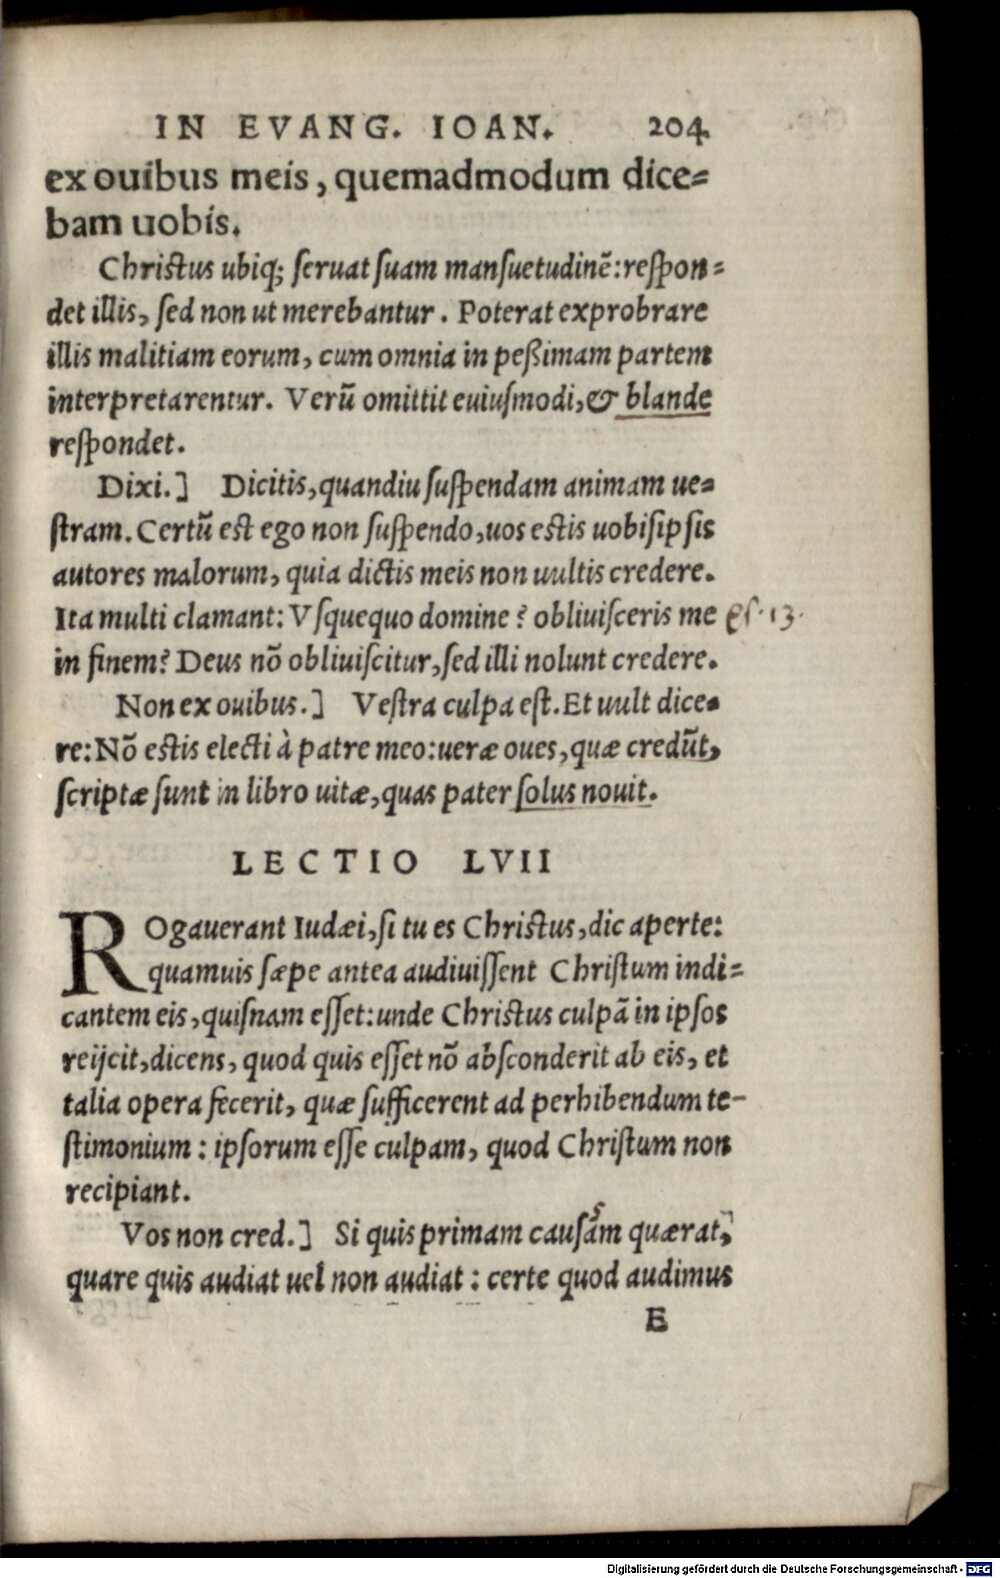 IN EVANG. IOAN. 204
ex ouibus meis, quemadmodum dice-
bam uobis.
Christus ubiq; seruat suam mansuetudinē: respon-
det illis, sed non ut merebantur. Poterat exprobrare
illis malitiam eorum, cum omnia in peßimam partem
interpretarentur. Verū omittit euiusmodi, & blande
respondet.
Dixi.] Dicitis, quandiu suspendam animam ue-
stram. Certū est ego non suspendo, uos estis uobisipsis
autores malorum, quia dictis meis non uultis credere.
Ita multi clamant: Vsquequo domine? obliuisceris me ps. 13.
in finem? Deus nō obliuiscitur, sed illi nolunt credere.
Non ex ouibus.] Vestra culpa est. Et uult dice-
re: Nō estis electi à patre meo: ueræ oues, quæ credūt,
scriptæ sunt in libro uitæ, quas pater solus nouit.
LECTIO LVII
ROgauerant Iudæi, si tu es Christus, dic aperte:
quamuis sæpe antea audiuissent Christum indi-
cantem eis, quisnam esset: unde Christus culpā in ipsos
reijcit, dicens, quod quis esset nō absconderit ab eis, et
talia opera fecerit, quæ sufficerent ad perhibendum te-
stimonium: ipsorum esse culpam, quod Christum non
recipiant.
Vos non cred.] Si quis primam causam quærat,
quare quis audiat uel non audiat: certe quod audimus
E
Digitalisierung gefördert durch die Deutsche Forschungsgemeinschaft - DFG